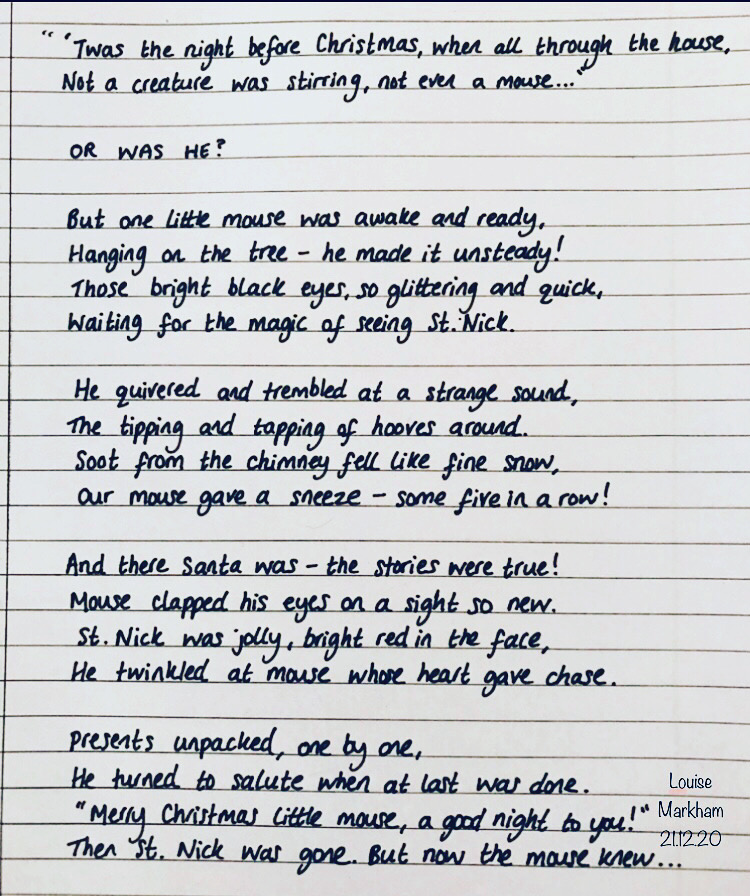 "'Twas the night before Christmas, when all through the house,
Not a creature was stirring, not even a mouse..."
OR WAS HE?
But one little mouse was awake and ready,
Hanging on the tree - he made it unsteady!
Those bright black eyes, so glittering and quick,
Waiting for the magic of seeing St. Nick.
He quivered and trembled at a strange sound,
The tipping and tapping of hooves around.
Soot from the chimney fell like fine snow,
Our mouse gave a sneeze - some five in a row!
And there Santa was - the stories were true!
Mouse clapped his eyes on a sight so new.
St. Nick was jolly, bright red in the face,
He twinkled at mouse whose heart gave chase.
Presents unpacked, one by one,
He turned to salute when at last was done.
"Merry Christmas little mouse, a good night to you!"
Then St. Nick was gone. But now the mouse knew...
Louise
Markham
21.12.20